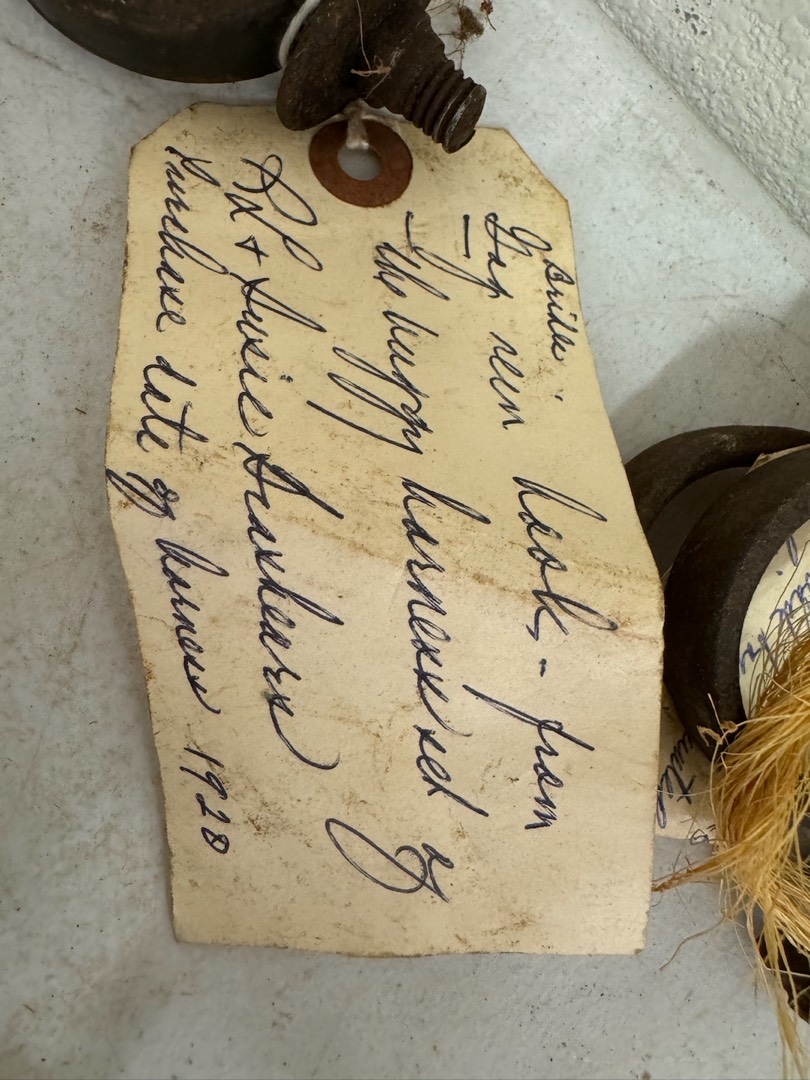 Bridle
Gag rein hook - from
the buggy harness set of
+ Susie Brashears
Purchase date of harness 1920